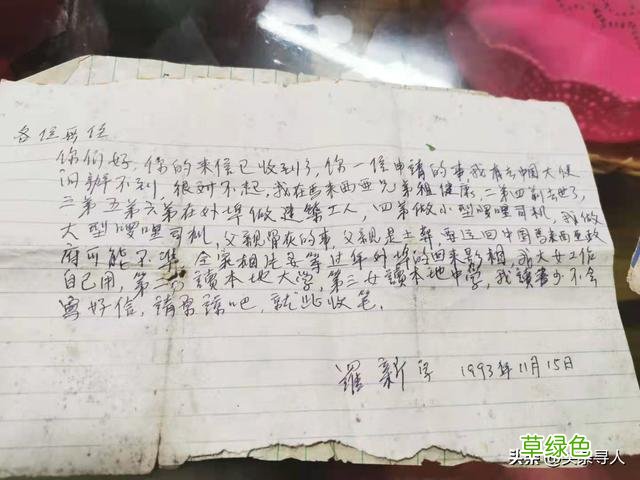 各位
你们好，你的来信已收到了，你一俢申請的事我有去中国大使
问辦不到，很对不起，我在西来西亚兄弟粗健康，二弟四前去世了，
三弟五弟六弟在外埠做建築工人，四弟做小型嘜哩司机，我做
大型嘜哩司机，父親骨灰的事，父親是土葬，要运回中国馬来西亚政
府可能不準，全家相片要等过年外埠的回来影相，我大女工作
自己用，第二讀本地大学，第三女讀本地中学，我讀書少不会
写好信，請原諒吧，就此收笔，
羅新 1993年11月15日
草绿色
头条@头条寻人